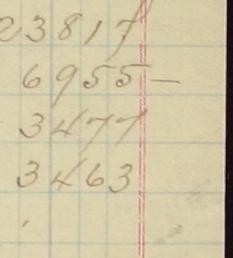 23817
6955 —
3477
3463